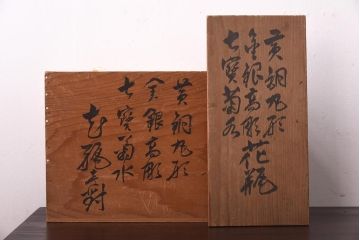 黄銅丸形
金銀高彫
七寳菊水
花瓶壱對
黄銅丸形
金銀高彫花瓶
七寳菊水